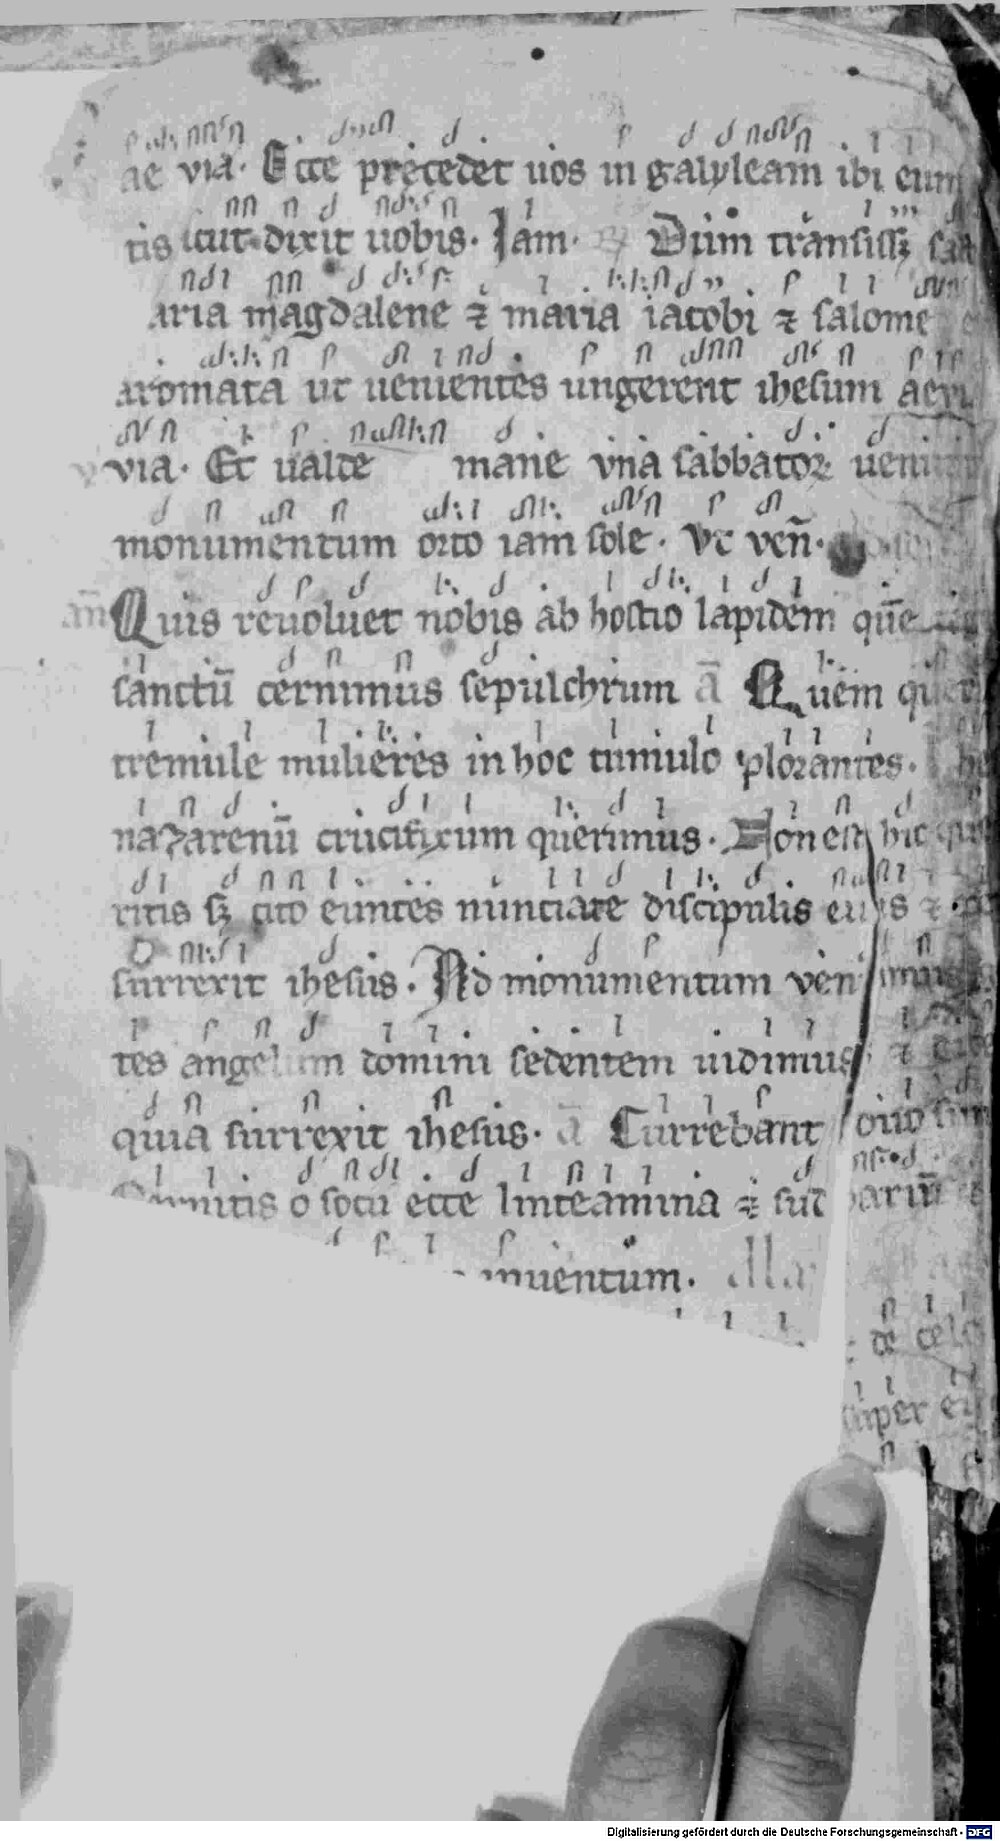 ae via. Ecce precedet uos in galyleam ibi eum
tis icut dixit uobis. Iam. Dum transissꝫ
aria magdalene ⁊ maria iacobi ⁊ salome
aromata ut uenientes ungerent ihesum
via. Et ualde mane vna sabbatoꝝ
monumentum orto iam sole. Vt ven̄.
an̄ Quis reuoluet nobis ab hostio lapidem quē
sanctū cernimus sepulchrum a̅ Quem
tremule mulieres in hoc tumulo plorantes.
nazarenū crucifixum querimus. Non est hic
ritis sꝫ cito euntes nunciate discipulis eius ⁊
surrexit ihesus. Ad monumentum ven
tes angelum domini sedentem uidimus ⁊
quia surrexit ihesus. a̅ Currebant duo
o socii ecce linteamina ⁊ sudariū
inuentum.
de celo
super
Digitalisierung gefördert durch die Deutsche Forschungsgemeinschaft - DFG